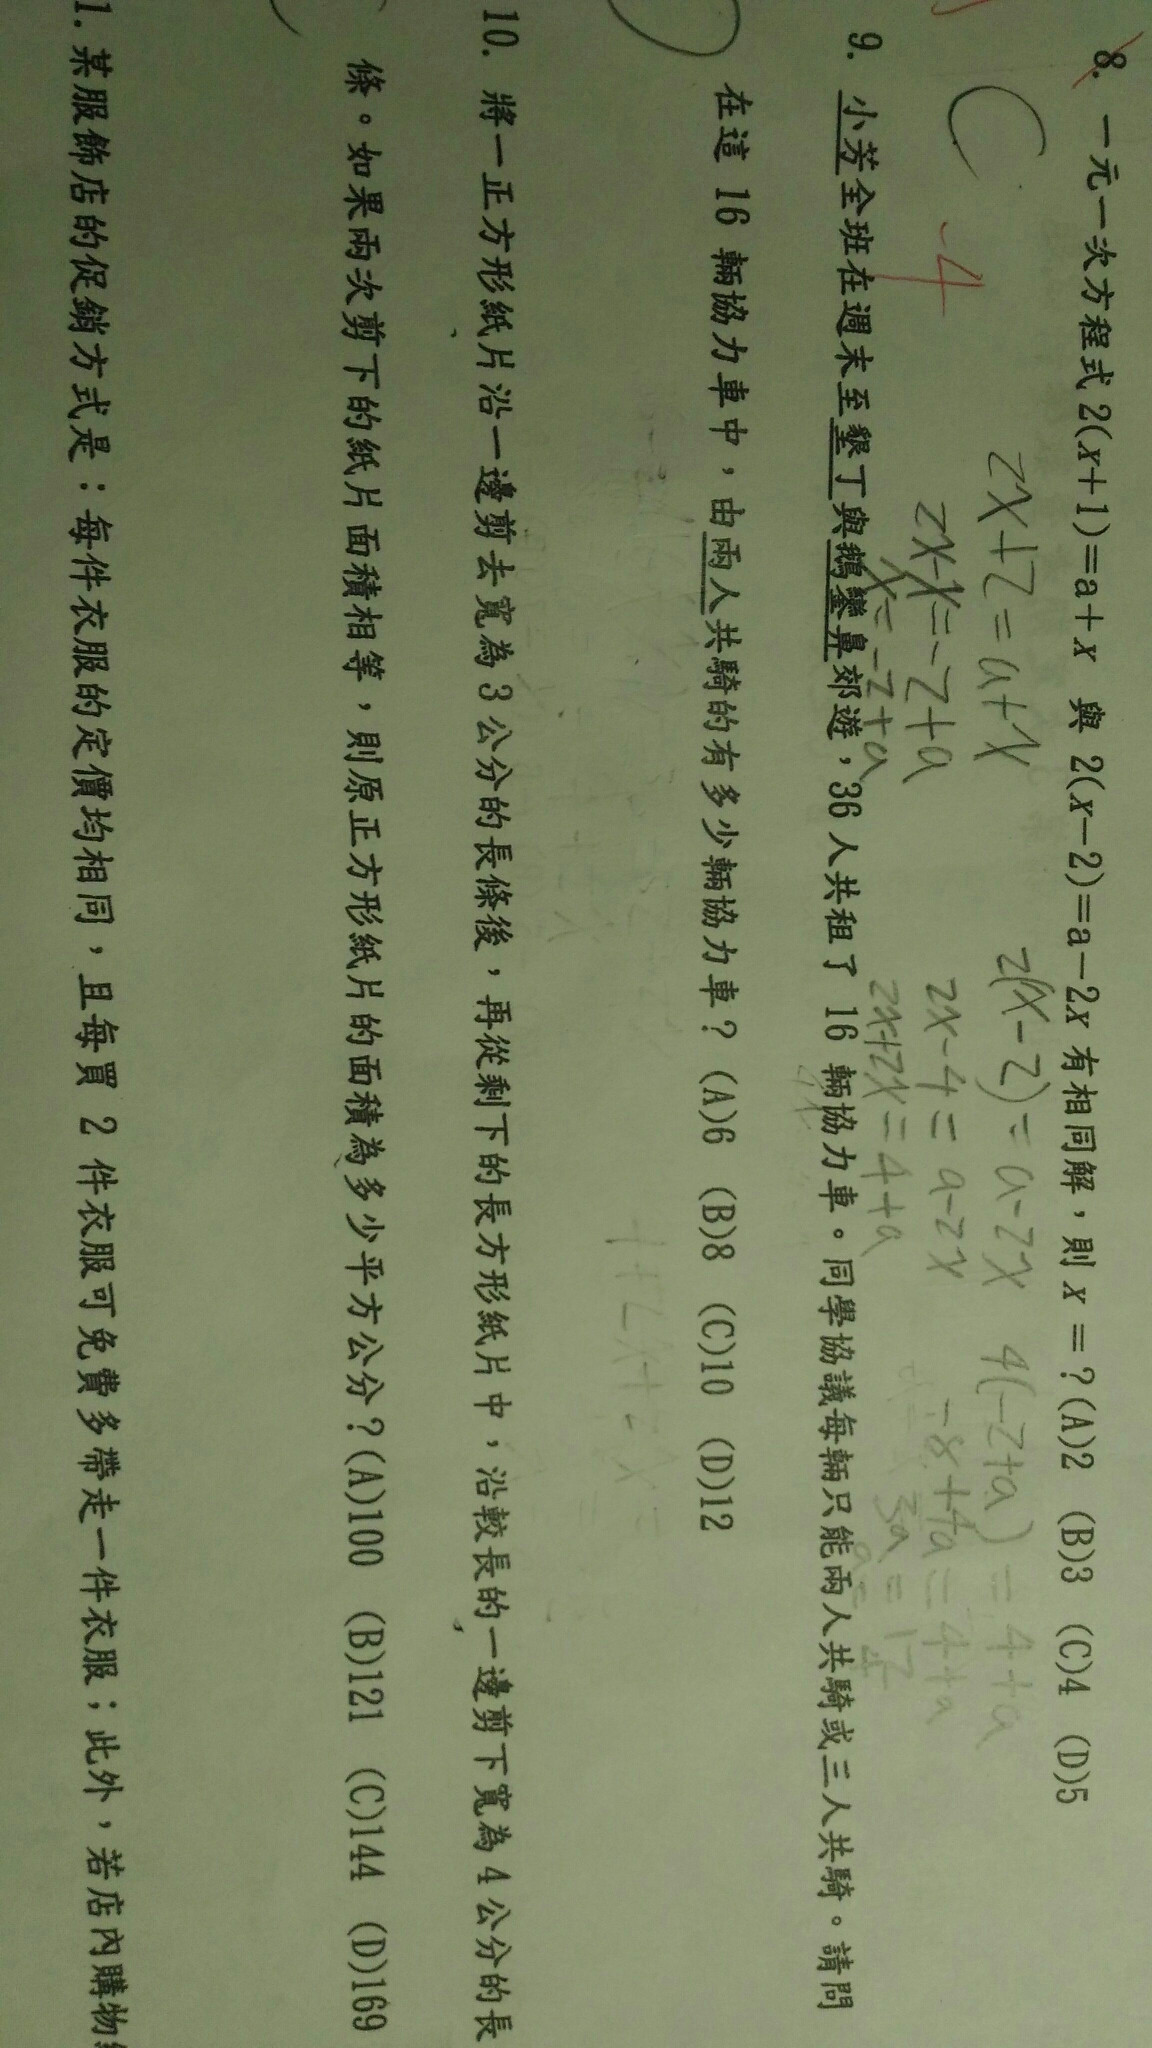 8. 一元一次方程式 2(x+1)=a+x 與 2(x-2)=a-2x 有相同解，則 x =？(A)2 (B)3 (C)4 (D)5
2x+2=a+x
2(x-2)=a-2x
4(-2+a)=4+a
2x-x=-2+a
2x-4=a-2x
-8+4a=4+a
x=-2+a
2x+2x=4+a
3a=12
-4
9. 小芳全班在週末至墾丁與鵝鑾鼻郊遊，36 人共租了 16 輛協力車。同學協議每輛只能兩人共騎或三人共騎。請問
在這 16 輛協力車中，由兩人共騎的有多少輛協力車？ (A)6 (B)8 (C)10 (D)12
10. 將一正方形紙片沿一邊剪去寬為 3 公分的長條後，再從剩下的長方形紙片中，沿較長的一邊剪下寬為 4 公分的長
條。如果兩次剪下的紙片面積相等，則原正方形紙片的面積為多少平方公分？(A)100 (B)121 (C)144 (D)169
1. 某服飾店的促銷方式是：每件衣服的定價均相同，且每買 2 件衣服可免費多帶走一件衣服；此外，若店內購物